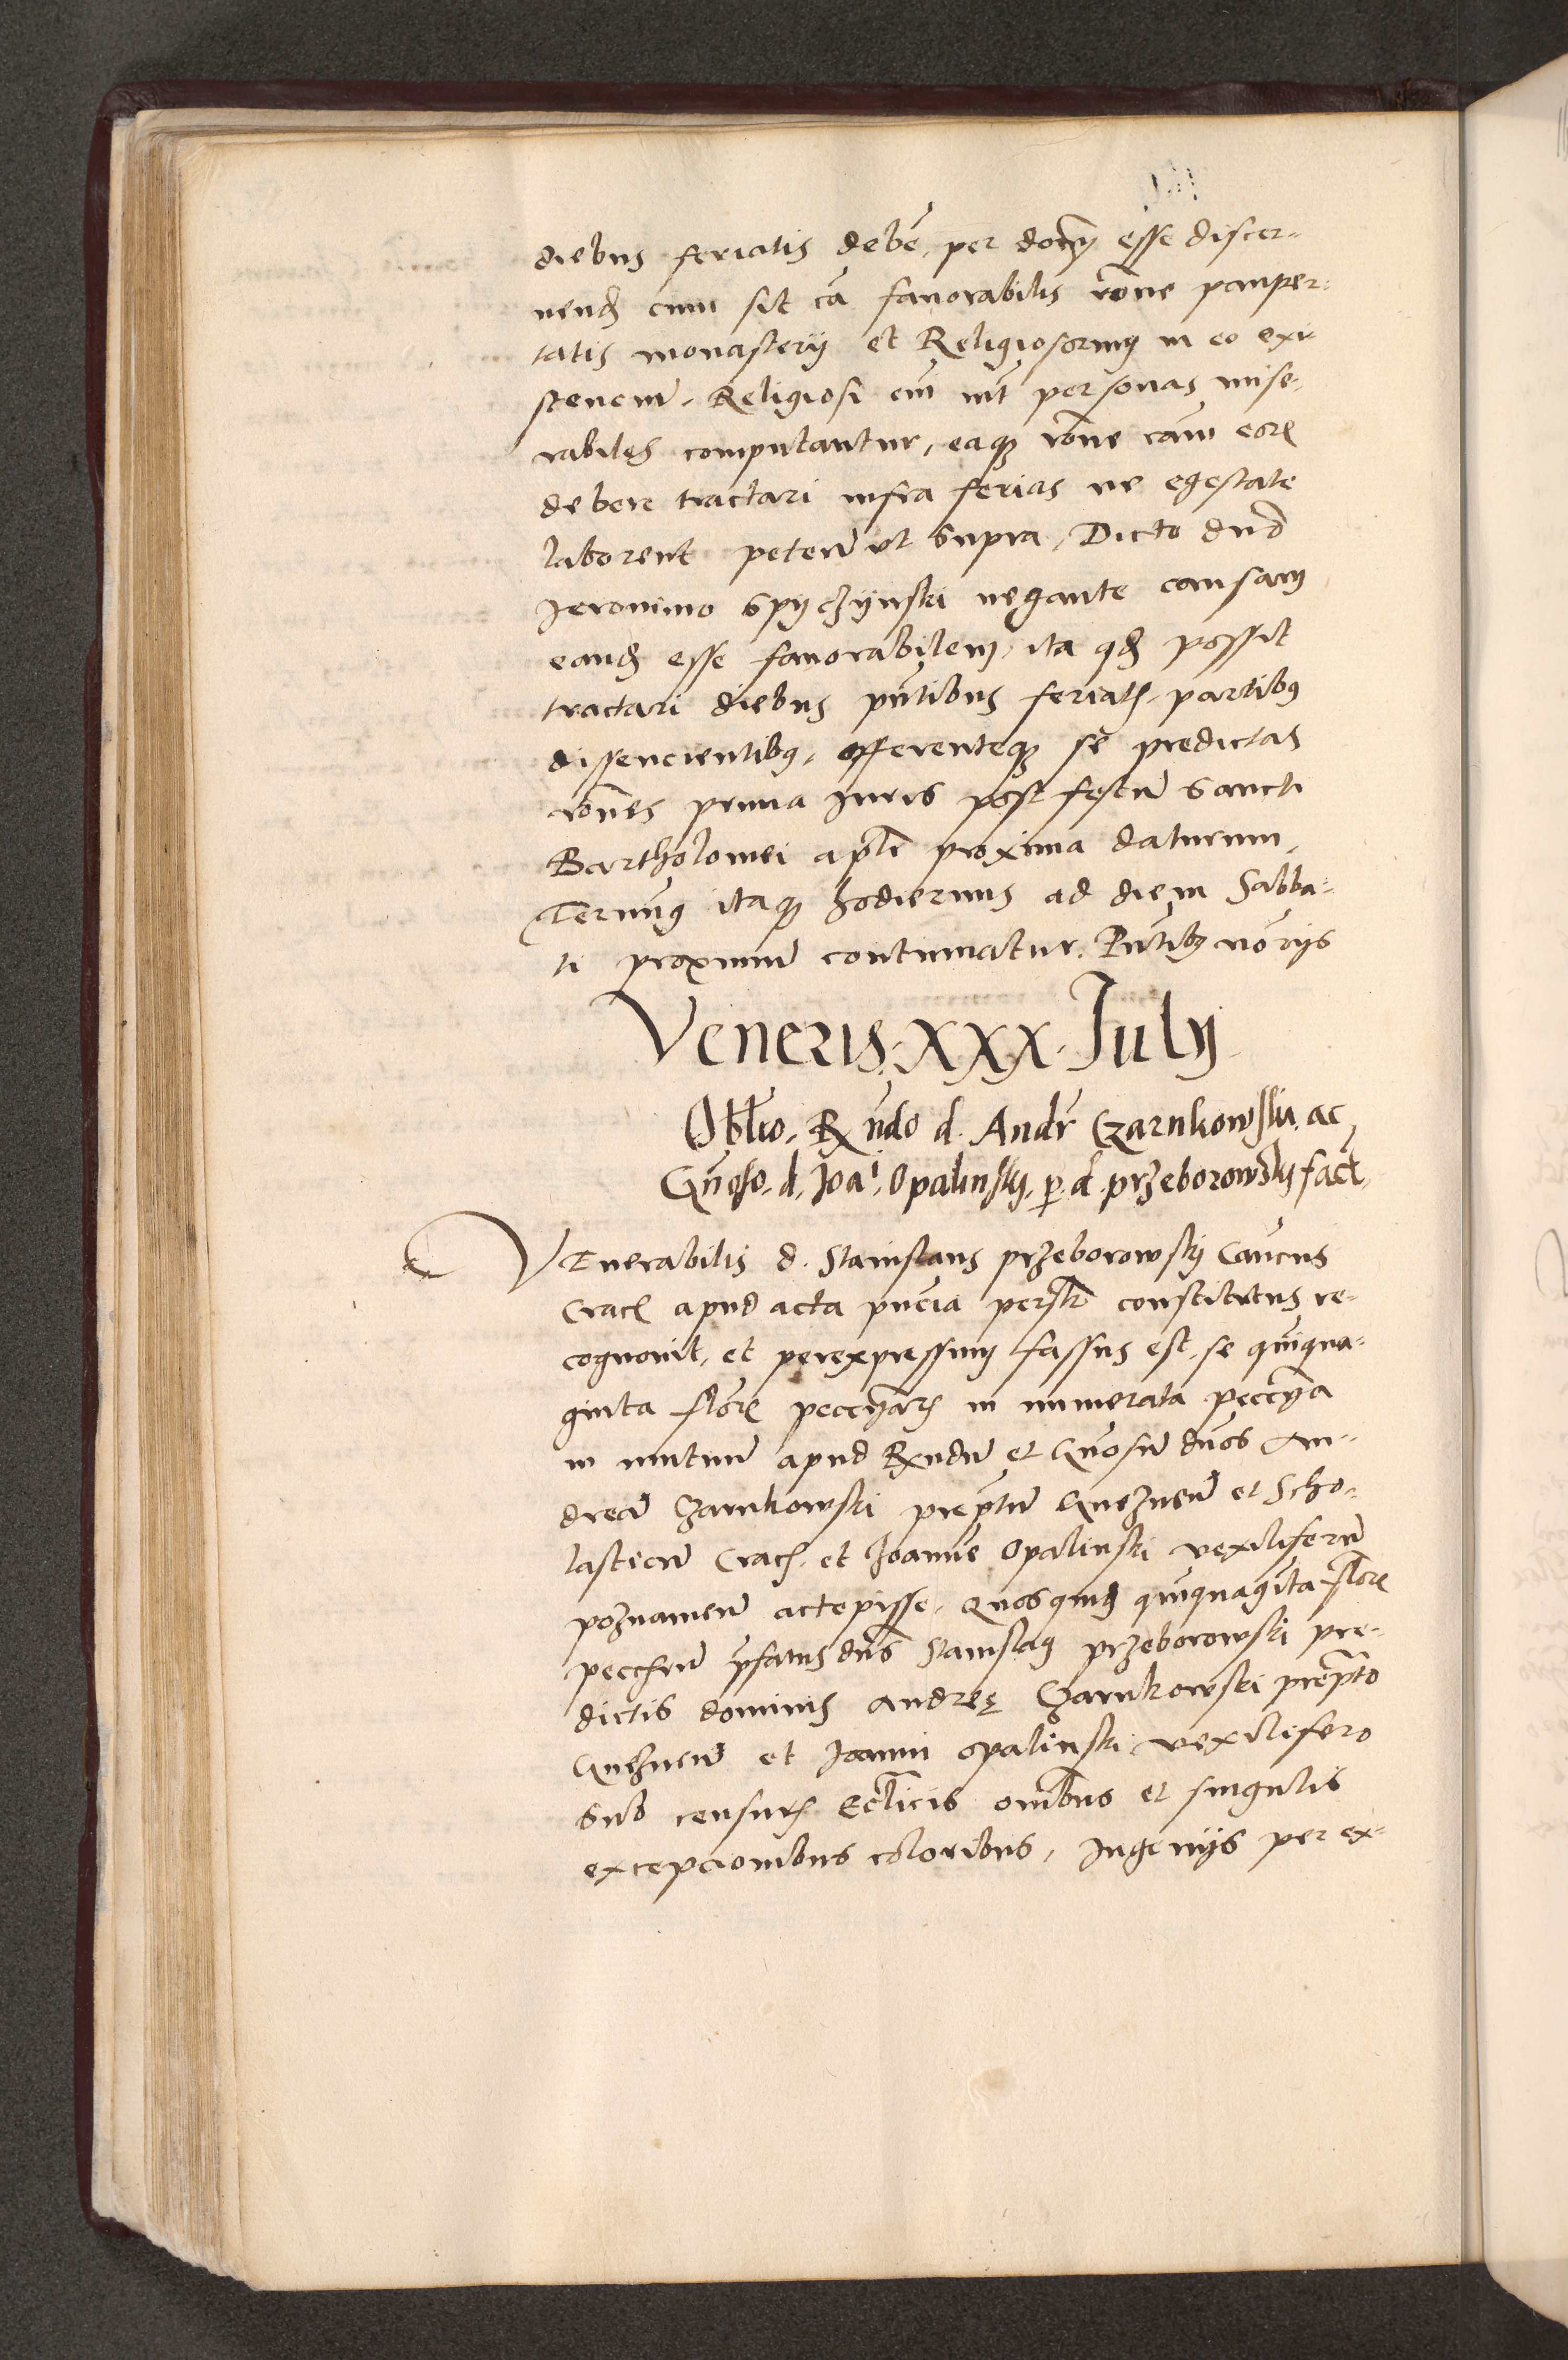 diebus feriatis debē. per docm̄ esse discer-
nend̄ cum sit cā fauorabilis rōne pauper-
tatis monasterij et Religiosorum in eo exi-
stencium. Religiosi em̄ int̄ personas mise-
rabiles computantur, eaqꝫ rōne cām eorꝫ
debere tractari infra ferias ne egestate
laborent peteñ vt supra, Dicto dn̄o
Jeronimo Spyczijnski negante causam
eand̄ esse fauorabilem, ita qd̄ possit
tractari diebus pn̄tibus feriatis. partibꝰ
dissencientibꝰ, offerenteqꝫ sē predictas
rōnes prima Juris post festū Sancti
Bartholomei apli proxima daturum,
Terminꝰ itaqꝫ hodiernus ad diem Sabba-
ti proximū continuatur. Pn̄tibꝫ nōrijs
Veneris. XXX. Julij
Obl̄io. Rn̄do d. Andr̄ Czarnkowski. ac
Gn̄oso. d. Joāi. Opalinskij. p. d. przeborowskij fact̄.
VEnerabilis d. Stanislaus przeborowskij Cān̄cus
Crac̄ apud acta pn̄cia persl̄r constitutus re-
cognouit, et perexpressum fassus est, se quinqua-
ginta flōrꝫ peccuniarꝫ in numerata pecc̄nia
in mutuū apud Rn̄dū et Gn̄osū dn̄os An-
dreā Czarnkowski prep̄tū Gnezneñ et Scho-
lasticū Crac̄. et Joannē Opalinski vexiliferū
poznanień accepisse, quos quid̄ quinquagīta flōrꝫ
pecc̄iarū p̄fatus dn̄s Stanislaus przeborowski pre-
dictis dominis andreę Czarnkowski prep̄to
Gnezneñ et Joanni opalinski vexilifero
sub censuris Eccl̄icis omībus et singulis
excepcionibus coloribus, Ingenijs per ex-